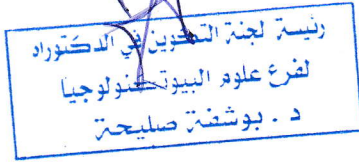 رئيسة لجنة التكوين في الدكتوراه
لفرع علوم البيوتكنولوجيا
د. بوشفة صليحة